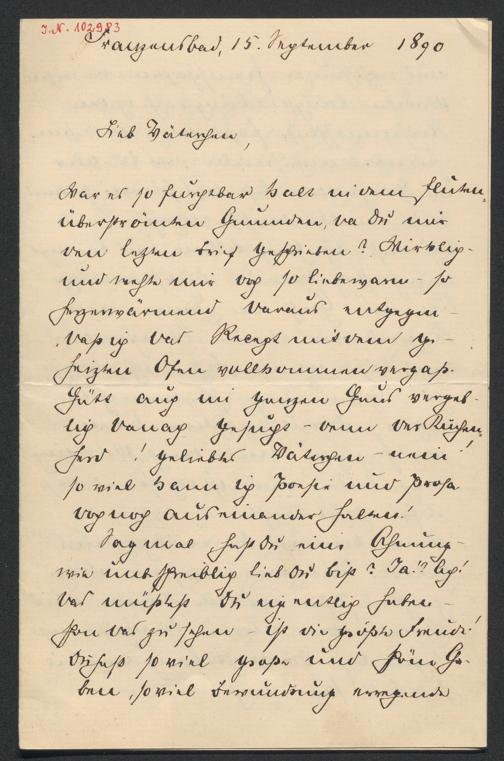 J.N. 102983
Franzensbad, 15. September 1890
Lieb Väterchen,
War es so furchtbar kalt in dem fluten-
überströmten Gmunden, da Du mir
den letzten Brief geschrieben? Wirklich -
und wehte mir doch so liebewarm - so
herzerwärmend daraus entgegen -
dass ich das Recept mit dem ge-
heizten Ofen vollkommen vergass.
Hätt auch im ganzen Haus vergeb-
lich danach gesucht - denn der Küchen-
herd! geliebtes Väterchen - nein!
so viel kann ich Poesie und Prosa
doch noch auseinander halten!
Sag mal hast Du eine Ahnung -
wie unbeschreiblich lieb Du bist? Ja!? Ach!
das müsstest Du eigentlich haben -
schon das zu sehen - ist die grösste Freude!
Du hast so viel grosse und schöne Ga-
ben, so viel Bewundrung erregende